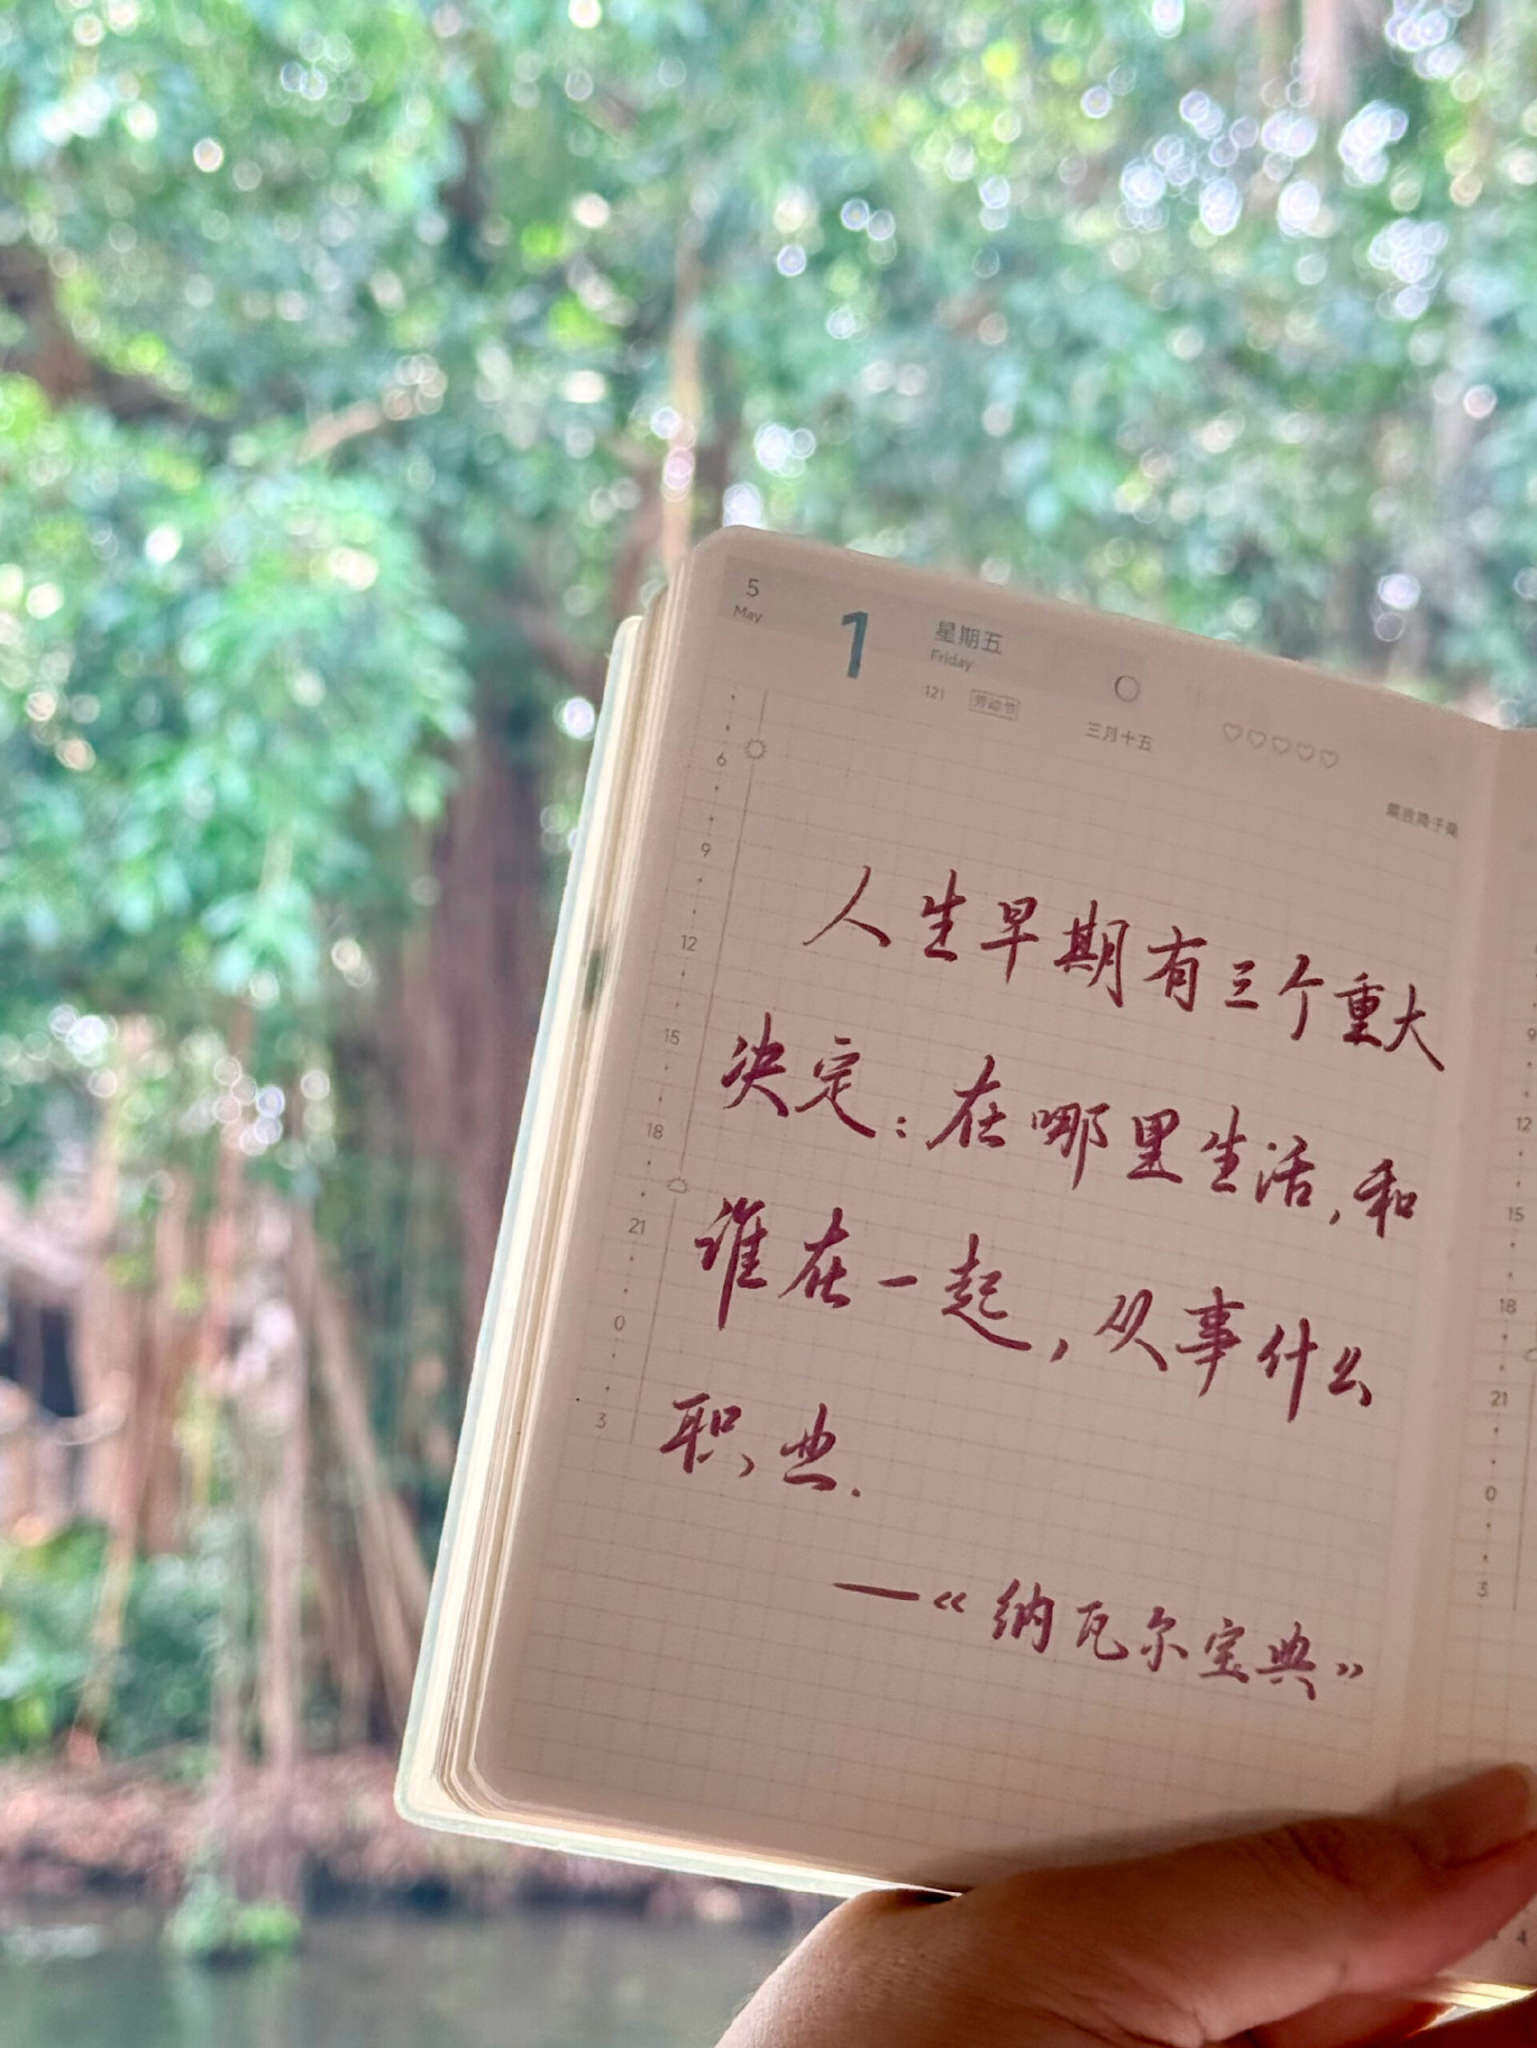 5
May
1
星期五
Friday
121 劳动节
三月十五
6
9
12
15
18
21
0
3
人生早期有三个重大
决定：在哪里生活，和
谁在一起，从事什么
职业.
—《纳瓦尔宝典》
9
12
15
18
21
0
3
4